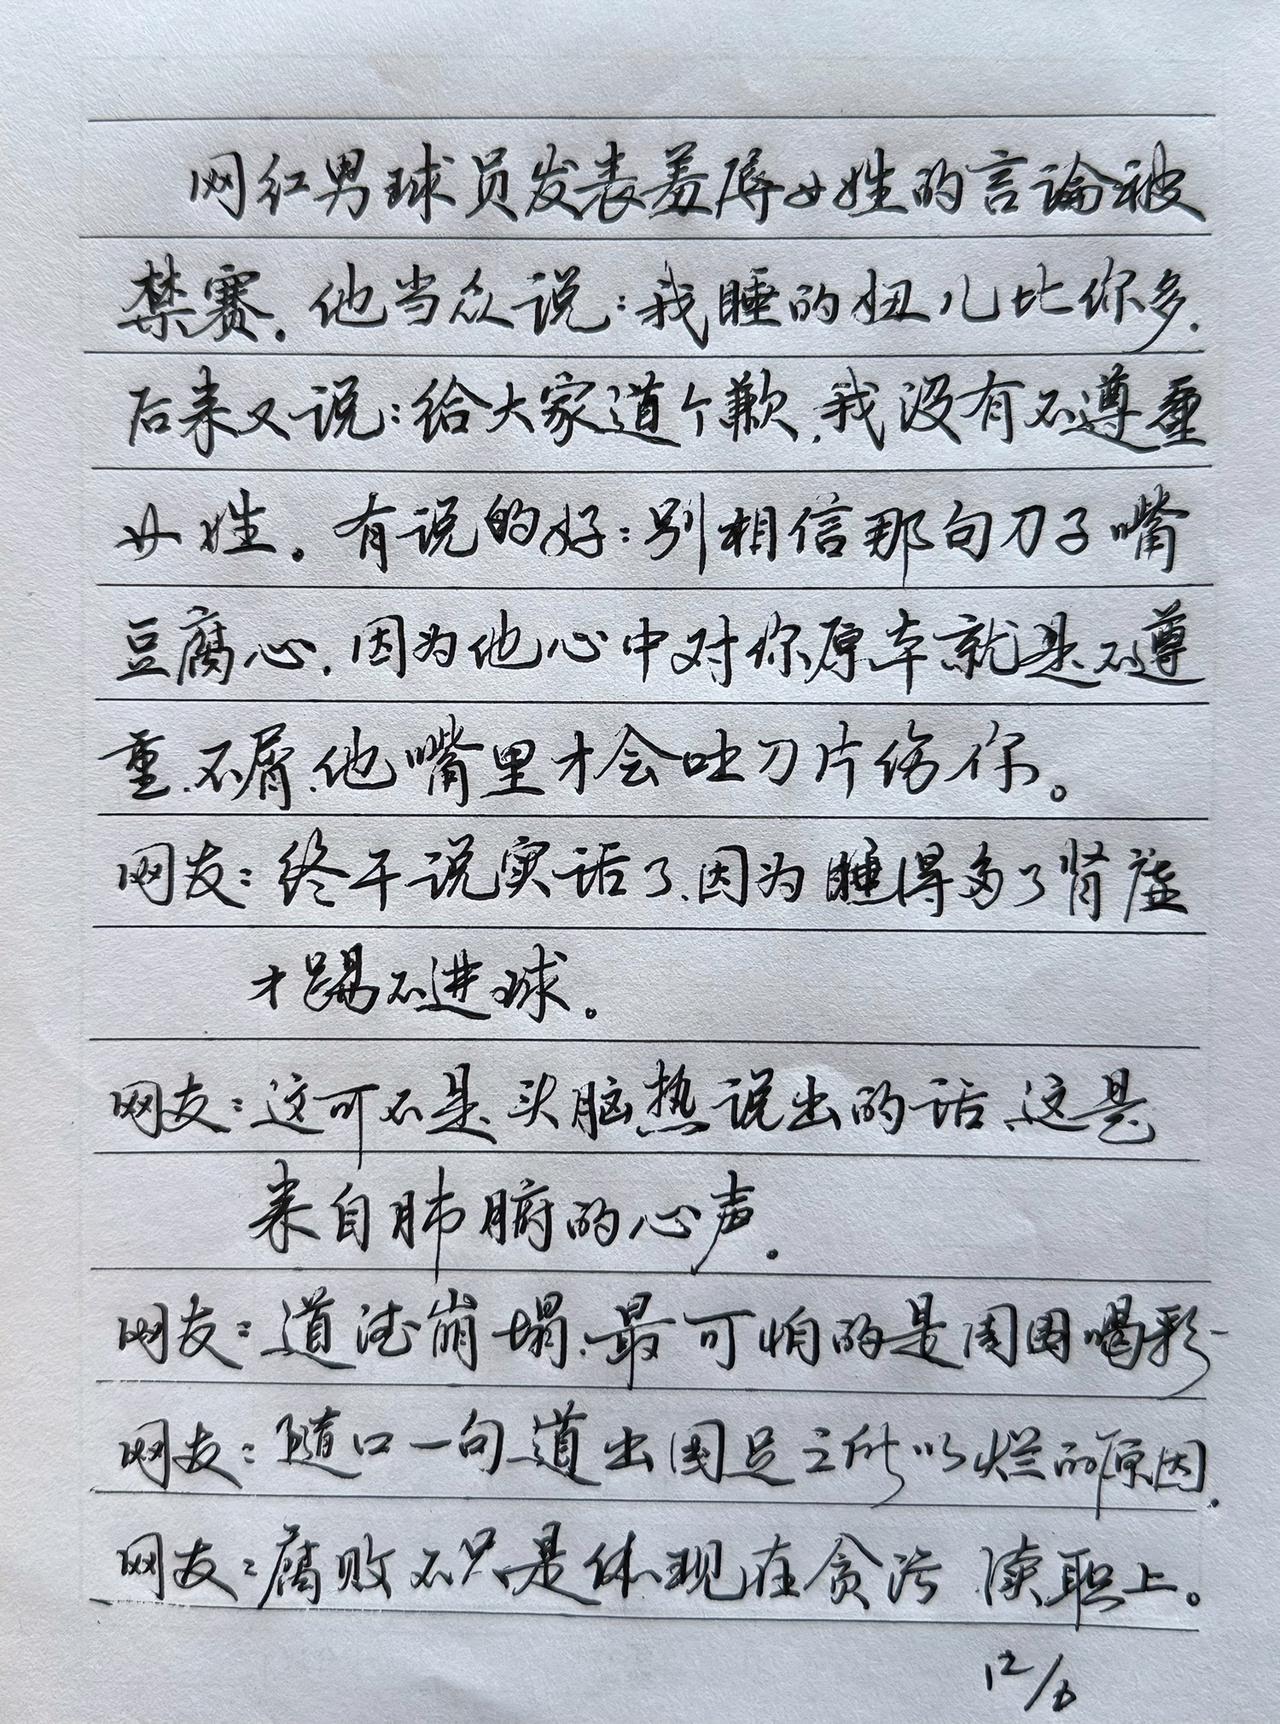 网红男球员发表羞辱女姓的言论被
禁赛。他当众说:我睡的妞儿比你多.
后来又说:给大家道个歉,我没有不遵重
女姓。有说的好:别相信那句刀子嘴
豆腐心,因为他心中对你原本就是不尊
重、不屑,他嘴里才会吐刀片伤你。
网友:终于说实话了,因为睡得多了肾虚
才踢不进球。
网友:这可不是头脑热说出的话,这是
来自肺腑的心声。
网友:道德崩塌,最可怕的是周围喝彩
网友:随口一句道出国足之所以烂的原因.
网友:腐败不只是体现在贪污 渎职上。
12/6